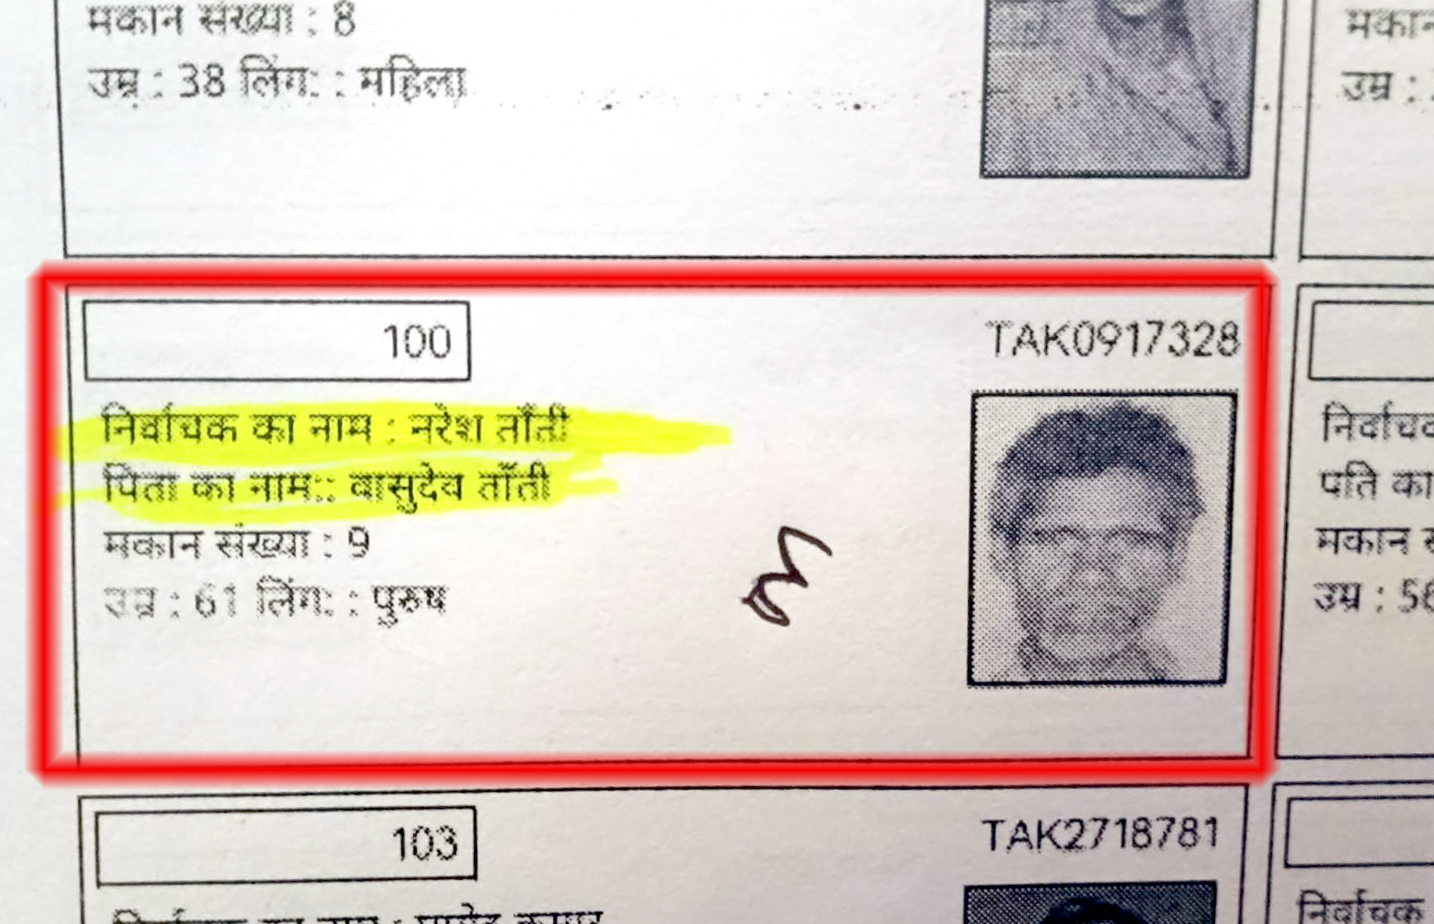 मकान संख्या : 8
उम्र : 38 लिंग: : महिला
मकान
उम्र :
100
TAK0917328
निर्वाचक का नाम : नरेश ताँती
पिता का नाम:: वासुदेव ताँती
मकान संख्या : 9
उम्र : 61 लिंग: : पुरुष
पति का
मकान
उम्र : 56
103
TAK2718781
निर्वाचक का नाम :
निर्वाचक